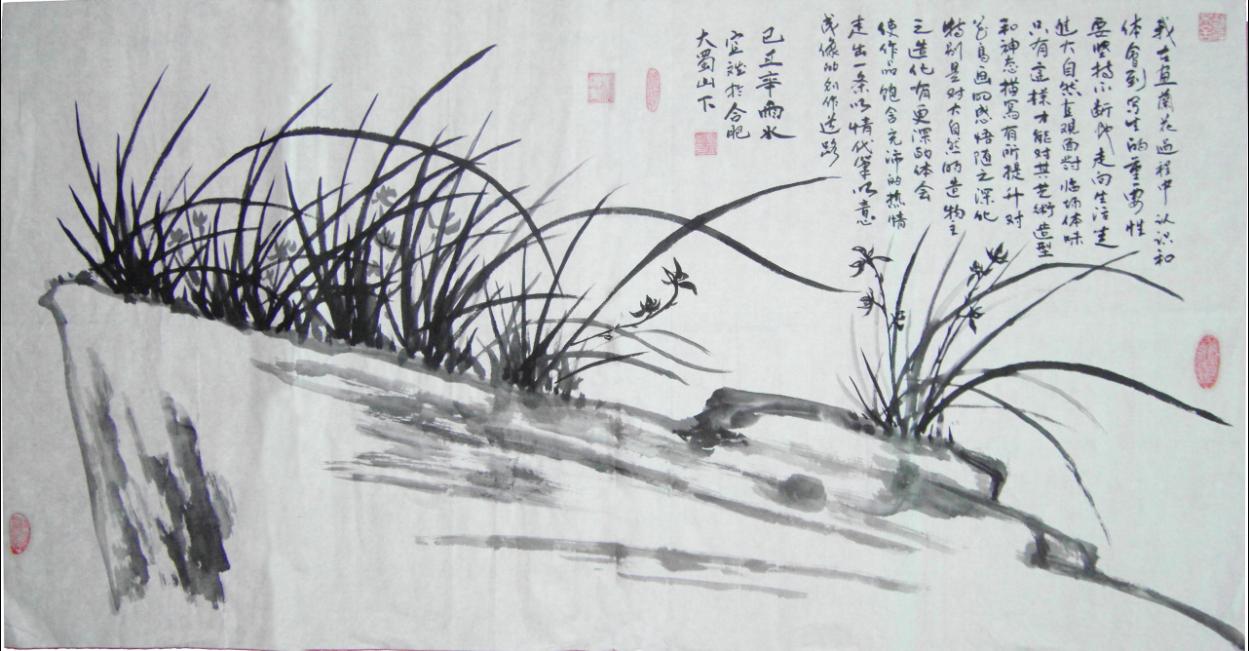 我在画蘭花过程中认识和
体会到写生的重要性
要坚持不断地走向生活走
進大自然直观面对临场体味
只有這樣才能对其艺術造型
和神态描寫有所提升对
花鸟画的感悟随之深化
特别是对大自然的造物主
之造化有更深的体会
使作品饱含充沛的热情
走出一条以情代笔以意
成像的创作道路
己丑年雨水
宜 於合肥
大蜀山下